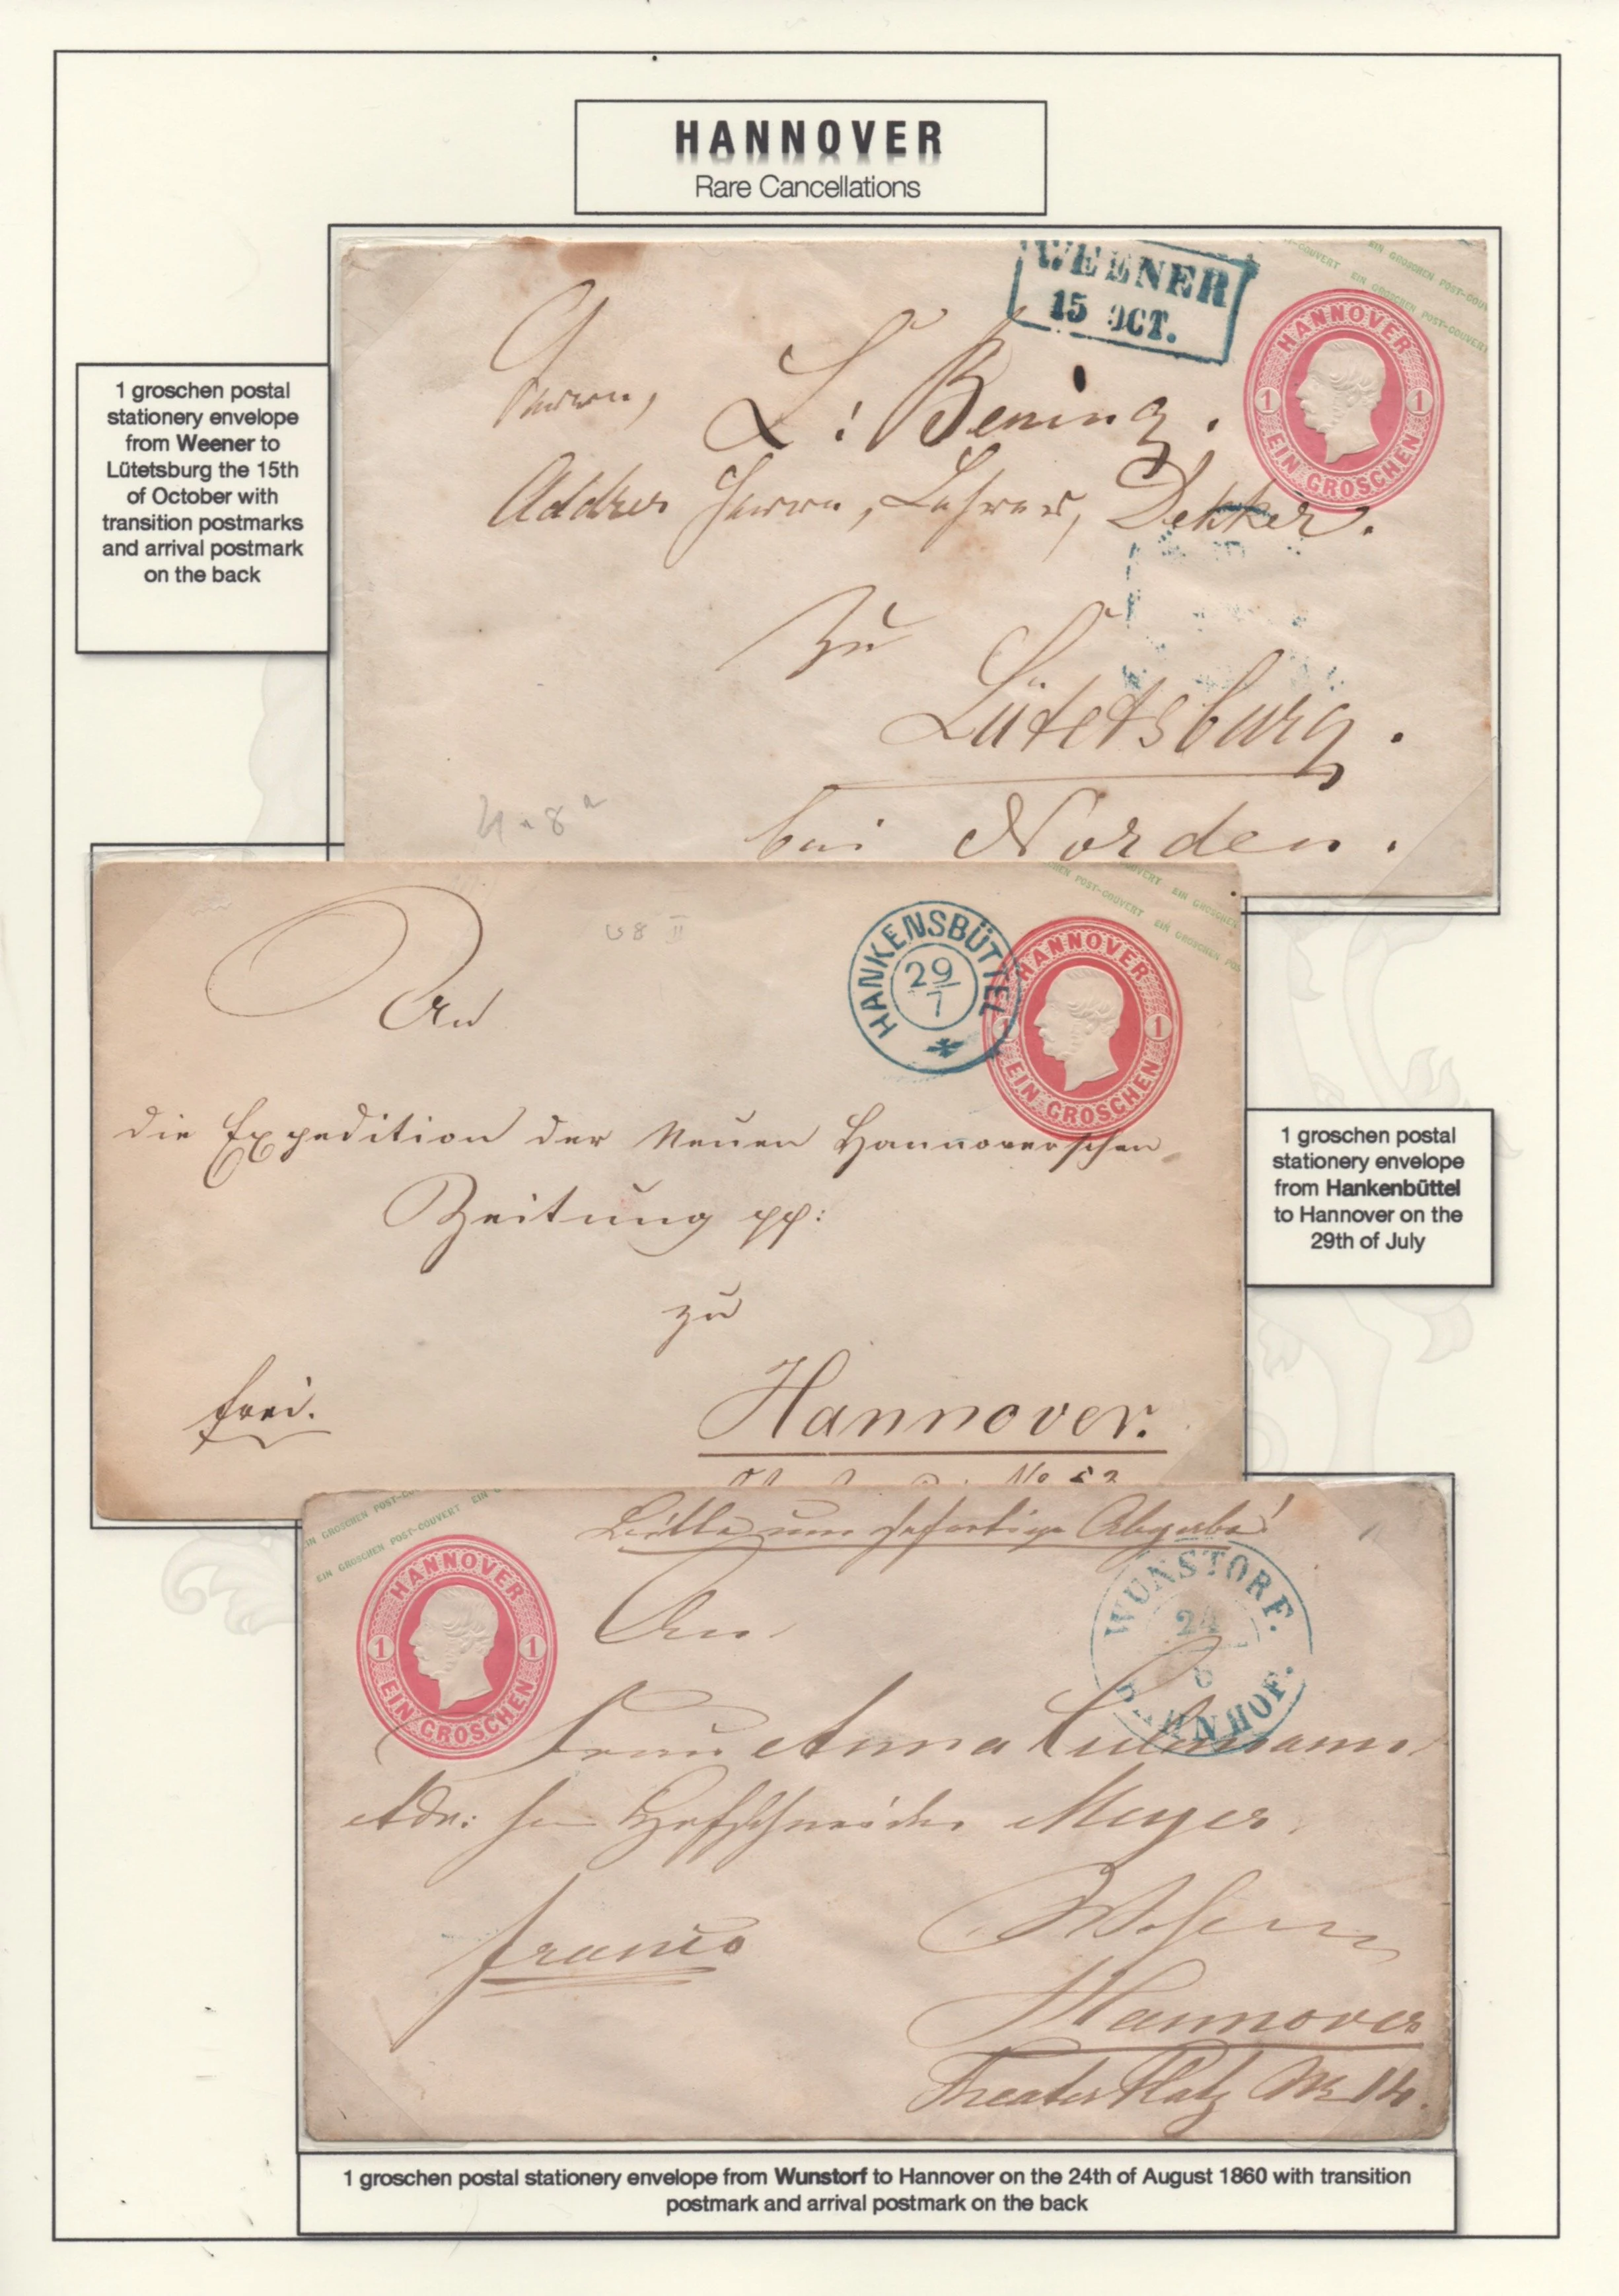 HANNOVER
Rare Cancellations
1 groschen postal
stationery envelope
from Weener to
Lütetsburg the 15th
of October with
transition postmarks
and arrival postmark
on the back
WEENER
15 OCT.
EIN GROSCHEN POST-COUVERT
EIN GROSCHEN POST-COUVERT
HANNOVER
1 1
EIN GROSCHEN
Herrn,
L: Bening.
Addres Herrn, Lehrer, Dekker.
zu
Lütetsburg.
bei Norden.
HANKENSBÜTTEL
29/7
POST-COUVERT EIN GROSCHEN
HANNOVER
1 1
EIN GROSCHEN
An
die Expedition der Neuen Hannoverschen
Zeitung pp:
zu
frei.
Hannover.
No 52
1 groschen postal
stationery envelope
from Hankenbüttel
to Hannover on the
29th of July
EIN GROSCHEN POST-COUVERT
EIN GROSCHEN POST-COUVERT EIN
HANNOVER
1 1
EIN GROSCHEN
Bitte um sofortige Abgabe!
WUNSTORF.
24
8
BAHNHOF.
An
Frau Anna
Adr: Hofschneider Meyer
franco
Hannover
Theater Platz No 14.
1 groschen postal stationery envelope from Wunstorf to Hannover on the 24th of August 1860 with transition
postmark and arrival postmark on the back